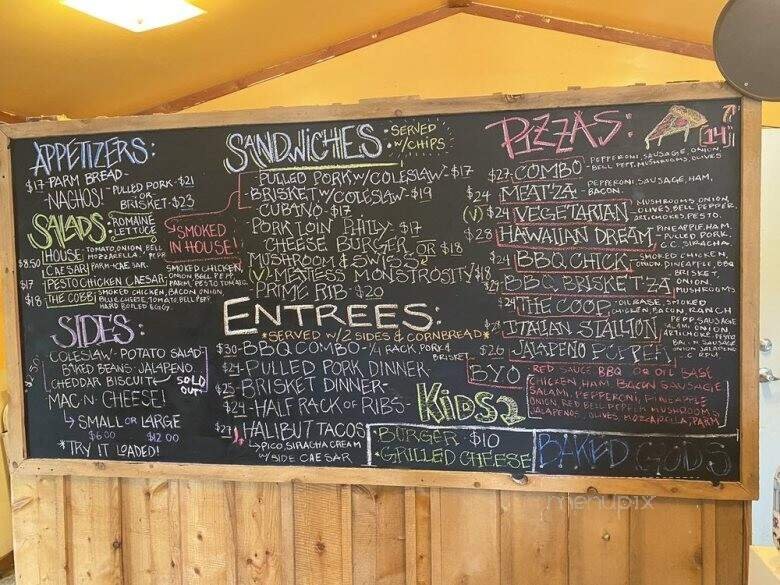 APPETIZERS:
$17-PARM BREAD-
NACHOS! - PULLED PORK-$21
OR
BRISKET-$23
SALADS: ROMAINE
LETTUCE
$8.50 HOUSE TOMATO, ONION, BELL
MOZZARELLA, PEPP
CAESAR PARM-CAE SAR.
$17 PESTO CHICKEN CAESAR SMOKED CHICKEN,
ONION, BELL PEP,
PARM, PESTO TOMATO,
$18 THE COBB SMOKED CHICKEN, BACON, ONION,
BLUE CHEESE, TOMATO, BELL PEP,
HARD BOILED EGGG.
SMOKED
IN HOUSE!
SIDES:
COLESLAW- POTATO SALAD
BAKED BEANS- JALAPENO
CHEDDAR BISCUIT SOLD
OUT
MAC-N-CHEESE!
SMALL OR LARGE
$6.00 $12.00
*TRY IT LOADED!
SANDWICHES • SERVED
W/CHIPS
PULLED PORK W/COLESLAW - $17
BRISKET W/COLESLAW - $19
CUBANO - $17
PORK LOIN PHILLY - $17
CHEESE BURGER OR $18
MUSHROOM & SWISS
(V) MEATLESS MONSTROSITY $18
PRIME RIB - $20
ENTREES:
*SERVED W/2 SIDES & CORNBREAD*
$30-BBQ COMBO - 1/4 RACK, PORK &
BRISKET
$24-PULLED PORK DINNER-
$25-BRISKET DINNER-
$24-HALF RACK OF RIBS-
$23 HALIBUT TACOS
PICO, SIRACHA CREAM
W/ SIDE CAESAR
KIDS
BURGER - $10
GRILLED CHEESE
BAKED GODS
PIZZAS: 14"
$27-COMBO- PEPPERONI, SAUSAGE, ONION,
BELL PEPP, MUSHROOMS, OLIVES
$24 MEAT'ZA- PEPPERONI, SAUSAGE, HAM,
BACON.
(V) $24 VEGETARIAN MUSHROOMS, ONION
OLIVES, BELL PEPPER,
ARTICHOKES, PESTO.
$28 HAWAIIAN DREAM PINEAPPLE, HAM,
PULLED PORK,
C.C. SIRACHA.
$24 BBQ CHICK- SMOKED CHICKEN,
ONION, PINEAPPLE, BBQ
BBQ BRISKET'ZA BRISKET,
ONION,
MUSHROOMS
$24 THE COOP OIL BASE, SMOKED
CHICKEN, BACON, RANCH
ITALIAN STALLION PEPP, SAUSAGE
SALAMI, ONION
ARTICHOKE PESTO
$26 JALAPENO POPPER
BYO RED SAUCE BBQ OR OIL BASE
CHICKEN, HAM, BACON, SAUSAGE
SALAMI, PEPPERONI, PINEAPPLE
ONION, RED BELL PEPPER, MUSHROOMS
JALAPENOS, OLIVES, MOZZARELLA, PARM
menupix